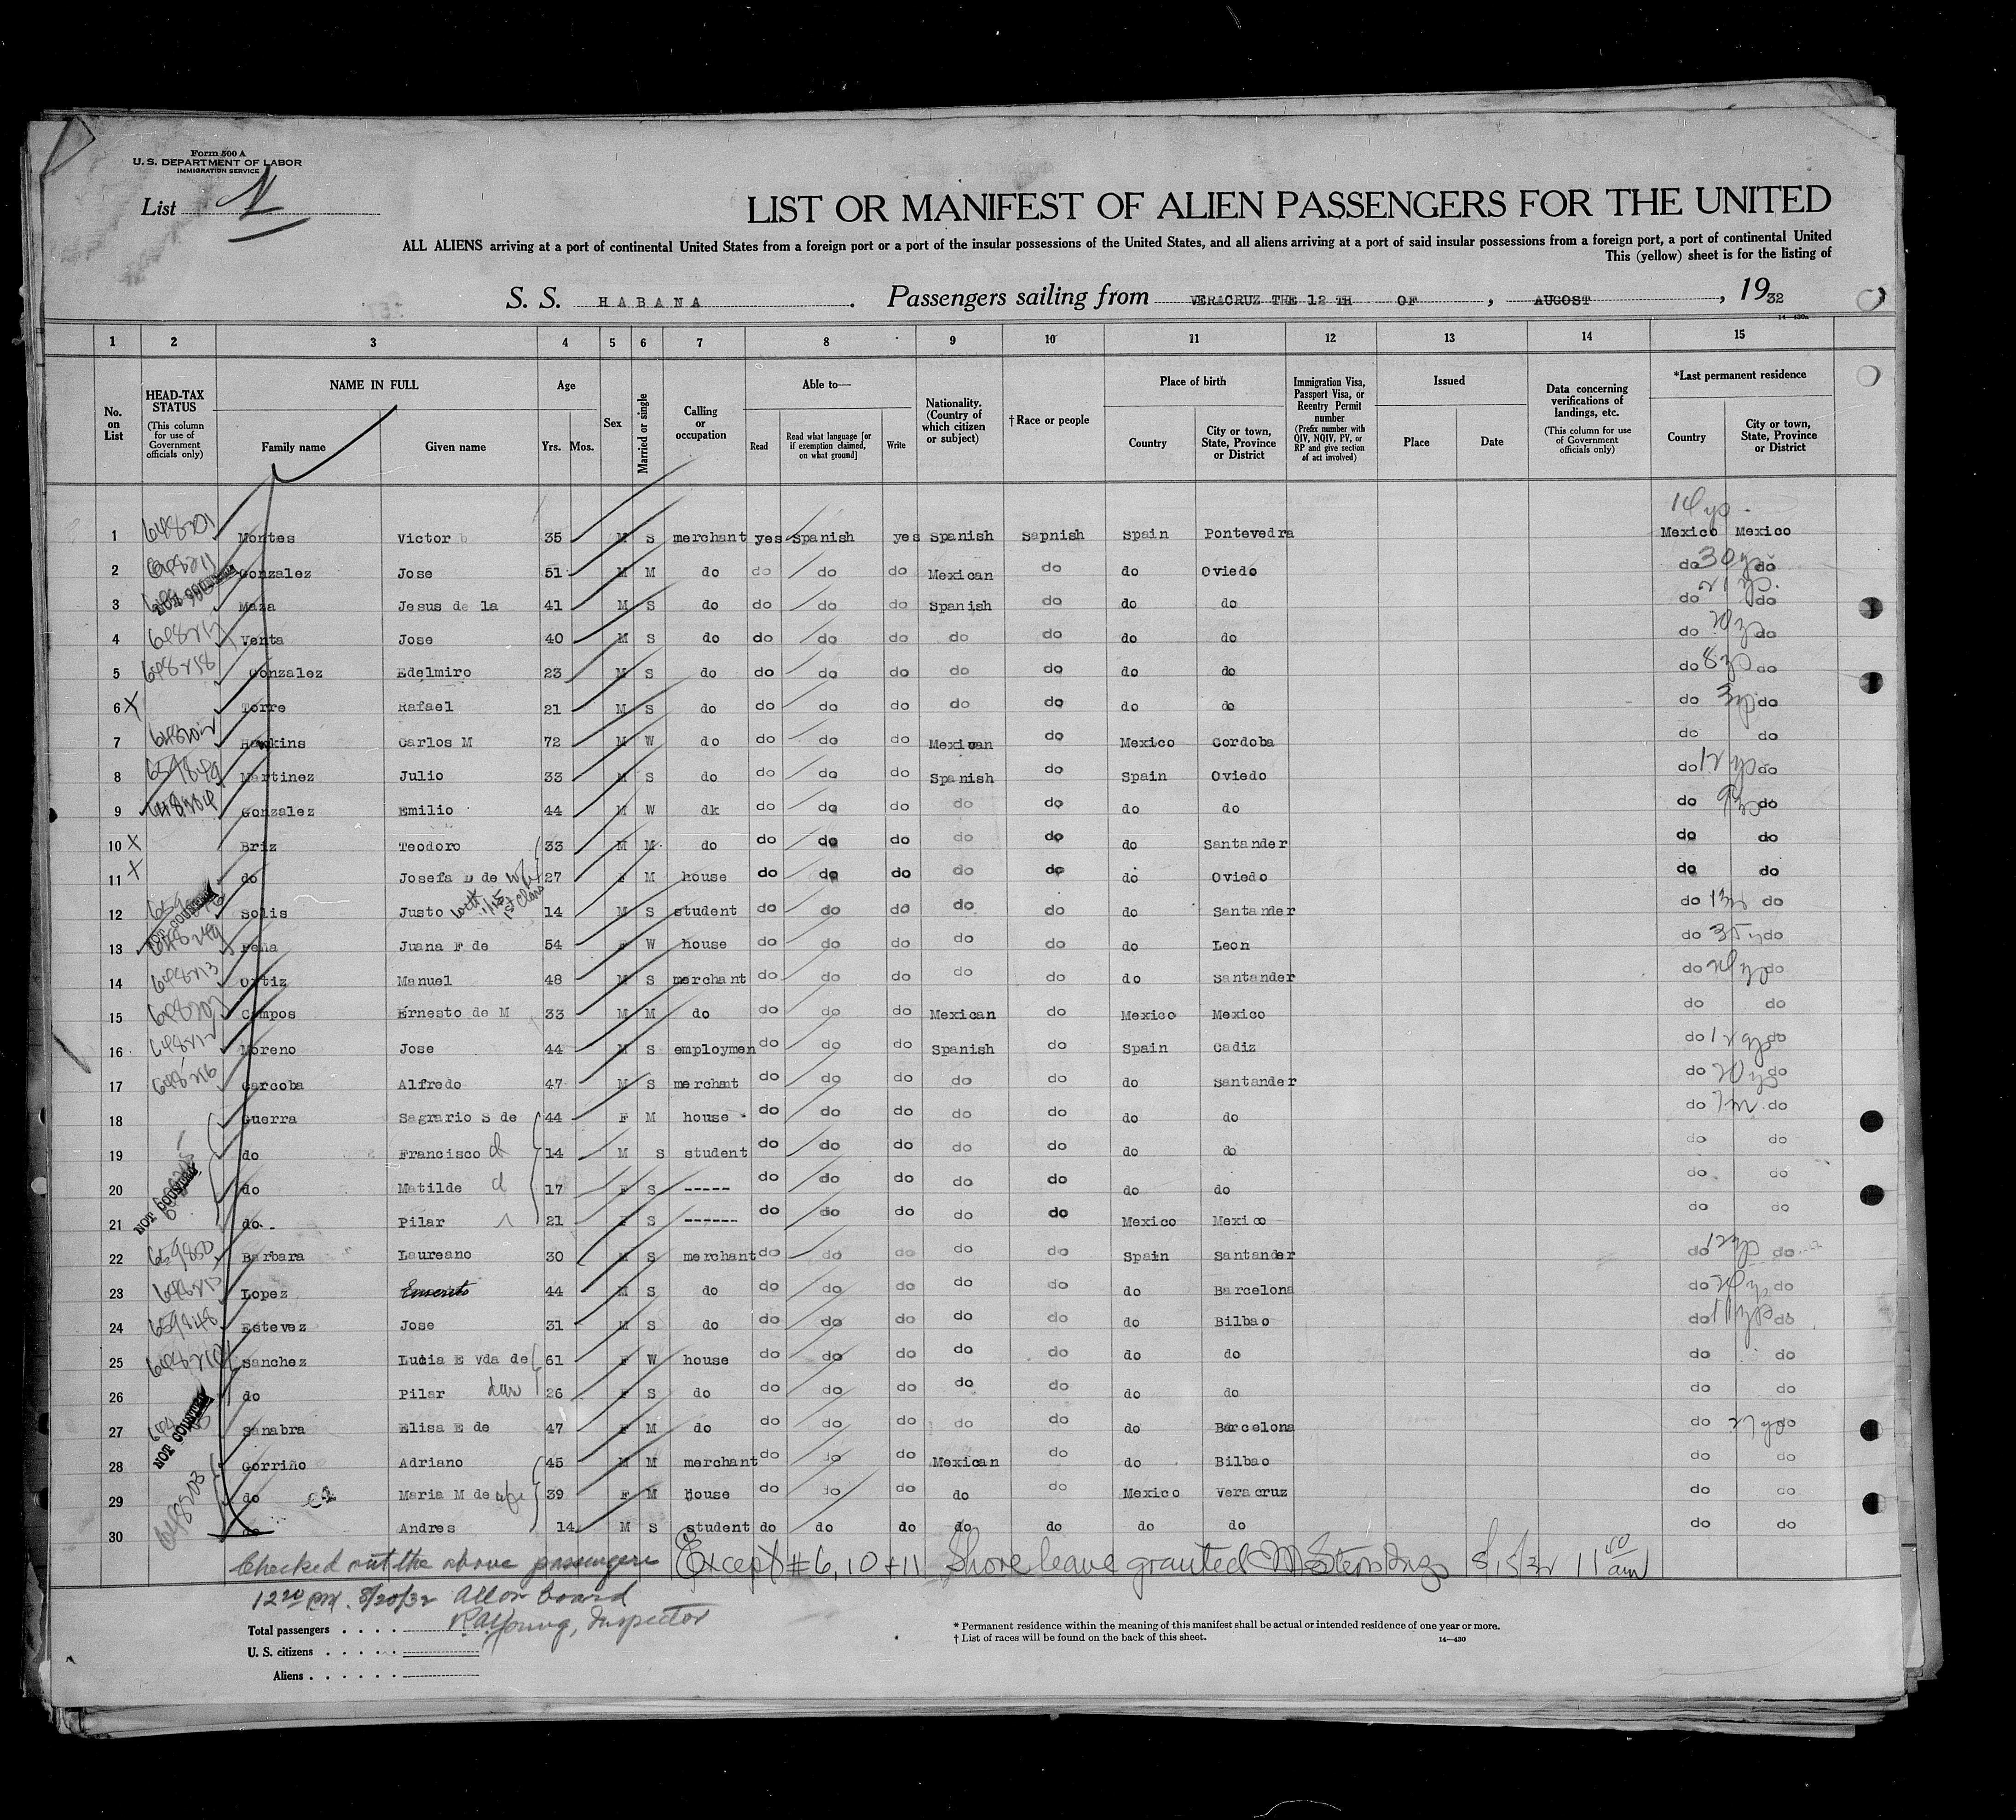 Form 500 A
U. S. DEPARTMENT OF LABOR
IMMIGRATION SERVICE
List
LIST OR MANIFEST OF ALIEN PASSENGERS FOR THE UNITED
ALL ALIENS arriving at a port of continental United States from a foreign port or a port of the insular possessions of the United States, and all aliens arriving at a port of said insular possessions from a foreign port, a port of continental United
This (yellow) sheet is for the listing of
S. S. HABANA . Passengers sailing from VERACRUZ THE 12 TH OF , AUGOST , 19 32
14—430a
1 2 3 4 5 6 7 8 9 10 11 12 13 14 15
No. on List
HEAD-TAX STATUS (This column for use of Government officials only)
NAME IN FULL
Family name Given name
Age Yrs. Mos.
Sex
Married or single
Calling or occupation
Able to— Read Read what language [or if exemption claimed, on what ground] Write
Nationality. (Country of which citizen or subject)
†Race or people
Place of birth Country City or town, State, Province or District
Immigration Visa, Passport Visa, or Reentry Permit number (Prefix number with QIV, NQIV, PV, or RP and give section of act involved)
Issued Place Date
Data concerning verifications of landings, etc. (This column for use of Government officials only)
*Last permanent residence Country City or town, State, Province or District
1 648201 Montes Victor 35 M S merchant yes Spanish yes Spanish Sapnish Spain Pontevedra Mexico Mexico 14 yrs
2 648211 Gonzalez Jose 51 M M do do do do Mexican do do Oviedo do 30 yrs do
3 Maza Jesus de la 41 M S do do do do Spanish do do do do 21 yrs. do
4 Venta Jose 40 M S do do do do do do do do do do
5 648218 Gonzalez Edelmiro 23 M S do do do do do do do do do 8 do
6 X Torre Rafael 21 M S do do do do do do do do do 3 do
7 Hawkins Carlos M 72 M W do do do do Mexican do Mexico Cordoba do do
8 659849 Martinez Julio 33 M S do do do do Spanish do Spain Oviedo do 12 yrs do
9 Gonzalez Emilio 44 M W dk do do do do do do do do 9 do
10 X Briz Teodoro 33 M M do do do do do do do Santander do do
11 X do Josefa D de wife 27 F M house do do do do do do Oviedo do do
12 Solis Justo with 1/15 1st Class 14 M S student do do do do do do Santander do 13 do
13 Peña Juana F de 54 F W house do do do do do do Leon do 35 do
14 648213 Ortiz Manuel 48 M S merchant do do do do do do Santander do do
15 Campos Ernesto de M 33 M M do do do do Mexican do Mexico Mexico do do
16 648212 Moreno Jose 44 M S employmen do do do Spanish do Spain Cadiz do 12 yrs do
17 648216 Carcoba Alfredo 47 M S merchant do do do do do do Santander do 20 yrs do
18 Guerra Sagrario S de 44 F M house do do do do do do do do 7m do
19 do Francisco 14 M S student do do do do do do do do do
20 NOT COUNTED do Matilde 17 F S ----- do do do do do do do do do
21 do Pilar 21 F S ------ do do do do do Mexico Mexico do do
22 659850 Barbara Laureano 30 M S merchant do do do do do Spain Santander do 12 do
23 Lopez Emerito 44 M S do do do do do do do Barcelona do do
24 659848 Estevez Jose 31 M S do do do do do do do Bilbao do 11 yrs do
25 648210 Sanchez Lucia E vda de 61 F W house do do do do do do do do do
26 do Pilar dau 26 F S do do do do do do do do do do
27 NOT COUNTED Sanabra Elisa E de 47 F M do do do do do do do Barcelona do 27 yrs do
28 Gorriño Adriano 45 M M merchant do do do Mexican do do Bilbao do do
29 648203 do Maria M de wife 39 F M House do do do do do Mexico Veracruz do do
30 do Andres 14 M S student do do do do do do do do do
Checked out the above passengers Except #6, 10 + 11 Shore leave granted 8/15/32 11 40 am
12 20 PM. 8/20/32 All on board
R. A. Young, Inspector
Total passengers . . . .
U. S. citizens . . . . .
Aliens . . . . . .
* Permanent residence within the meaning of this manifest shall be actual or intended residence of one year or more.
† List of races will be found on the back of this sheet.
14—430